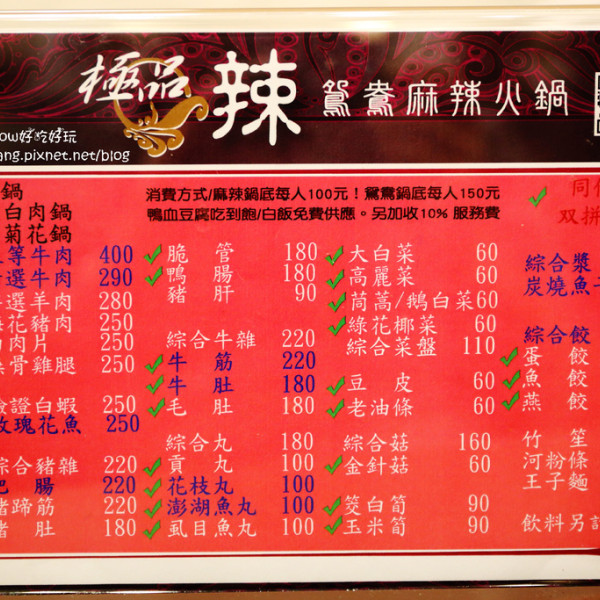 極品 辣 鴛鴦麻辣火鍋
ow好吃好玩
ang.pixnet.net/blog
鍋
白肉鍋
菊花鍋
消費方式/麻辣鍋底每人100元！鴛鴦鍋底每人150元
鴨血豆腐吃到飽/白飯免費供應。另加收10% 服務費
同
双拼
等牛肉 400
選牛肉 290
選羊肉 280
花豬肉 250
肉片 250
骨雞腿 250
證白蝦 250
玫瑰花魚 250
綜合豬雜 220
肥腸 220
豬蹄筋 220
豬肚 180
脆管 180
鴨腸 180
豬肝 90
綜合牛雜 220
牛筋 220
牛肚 180
毛肚 180
綜合丸 180
貢丸 100
花枝丸 100
澎湖魚丸 100
虱目魚丸 100
大白菜 60
高麗菜 60
茼蒿/鵝白菜 60
綠花椰菜 60
綜合菜盤 110
豆皮 60
老油條 60
綜合菇 160
金針菇 60
筊白筍 90
玉米筍 90
綜合漿
炭燒魚
綜合餃
蛋餃
魚餃
燕餃
竹笙
河粉條
王子麵
飲料另